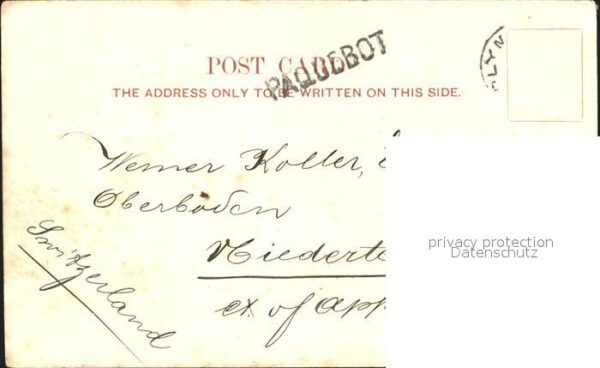 POST CARD
PAQUEBOT
LYN
THE ADDRESS ONLY TO BE WRITTEN ON THIS SIDE.
Werner Koller,
Oberboden
Niederte
Switzerland
ct. of App
privacy protection
Datenschutz